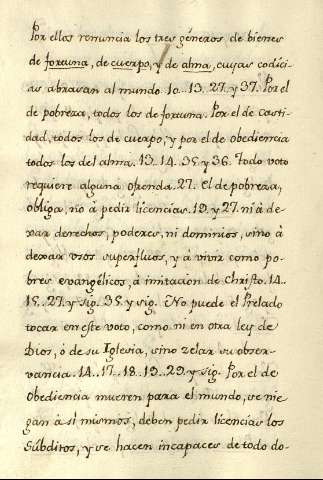 Por ellos renuncia los tres géneros de bienes
de fortuna, de cuerpo, y de alma, cuyas codíci-
as abrasan al mundo. 10. 13. 27. y 37. Por el
de pobreza, todos los de fortuna. Por el de casti-
dad, todos los de cuerpo, y por el de obediencia
todos los del alma. 13. 14. 35. y 36. Todo voto
requiere alguna ofrenda. 27. El de pobreza,
obliga, no à pedir licencias. 19. y 27. ni à de-
xar derechos, poderes, ni dominios, sino à
dexar vsos superfluos, y à vivir como po-
bres evangélicos, à imitacion de Christo. 14..
15..27. y sig. 35. y sig. No puede el Prelado
tocar en este voto, como ni en otra ley de
Dios, ó de su Iglesia, sino zelar su obser-
vancia. 14..17..18. 19..29. y sig. Por el de
Obediencia mueren para el mundo, se nie-
gan à sì mismos, deben pedir licencias los
Súbditos, y se hacen incapaces de todo do-